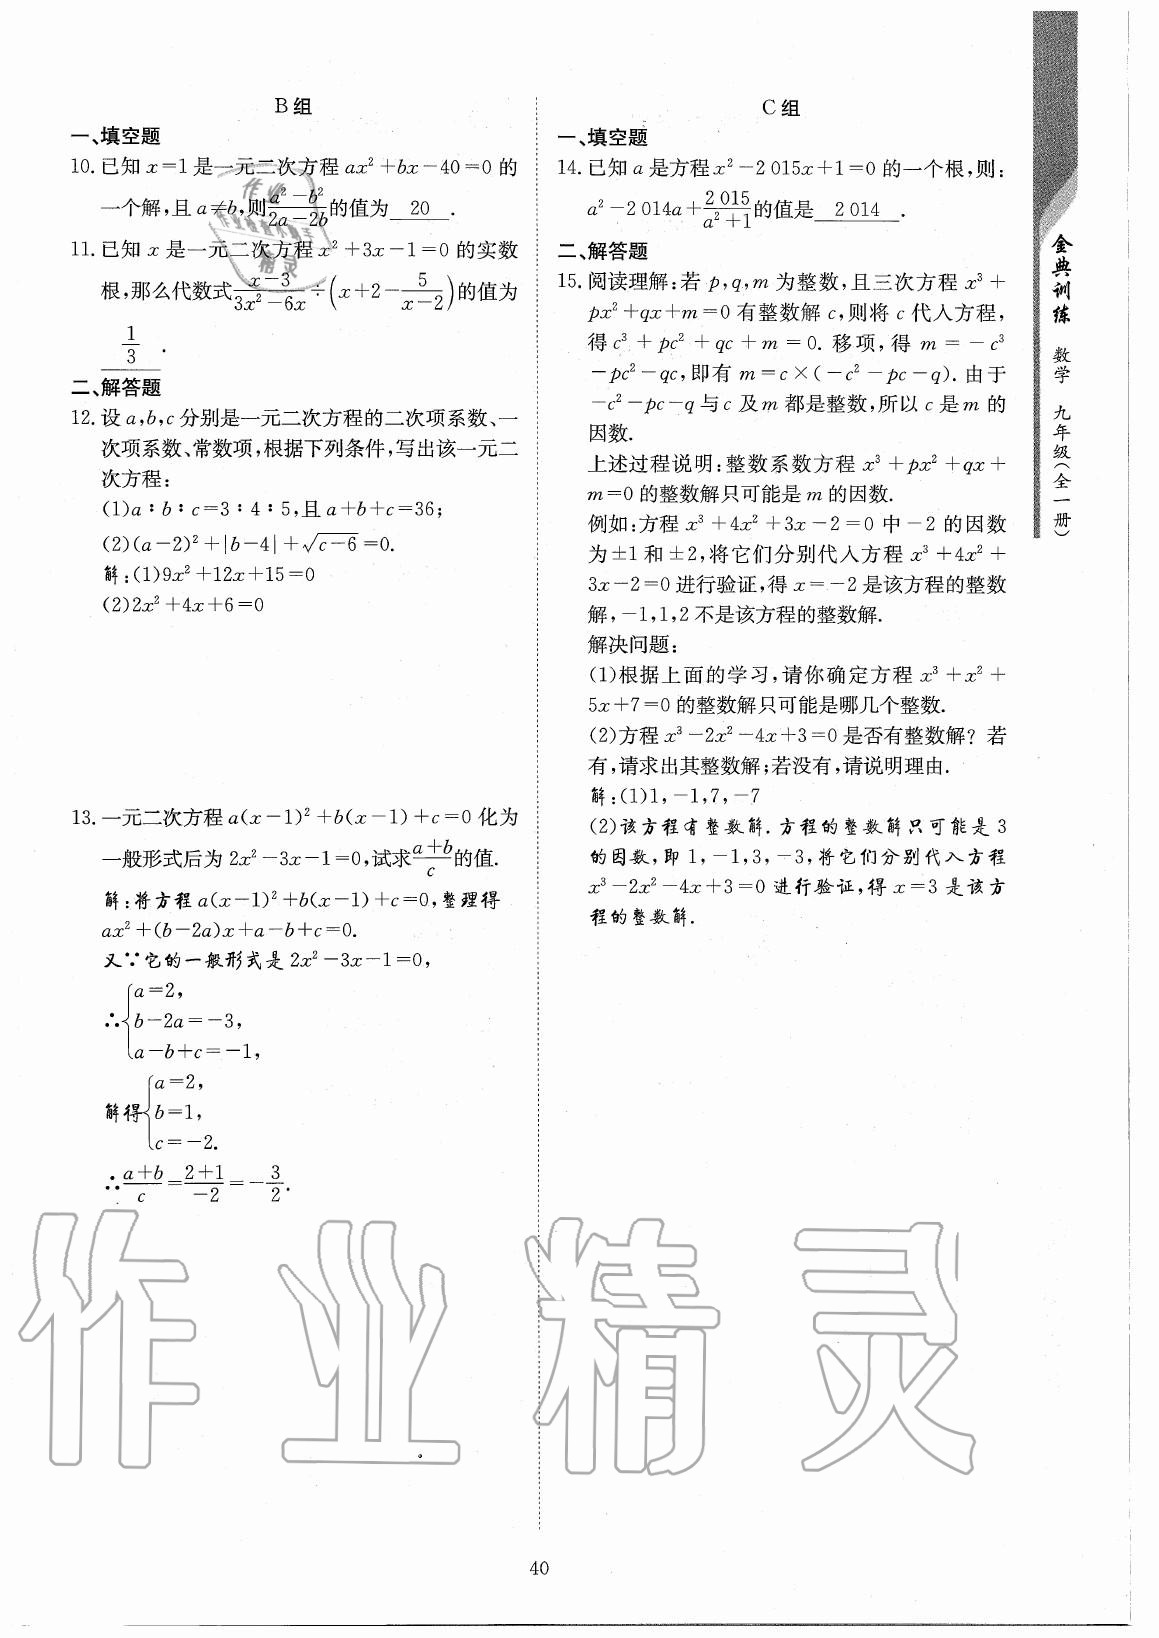 B组
一、填空题
10. 已知 x=1 是一元二次方程 ax²+bx-40=0 的
一个解,且 a≠b,则 (a²-b²)/(2a-2b) 的值为 20 .
11. 已知 x 是一元二次方程 x²+3x-1=0 的实数
根,那么代数式 (x-3)/(3x²-6x)÷(x+2-5/(x-2)) 的值为
1/3 .
二、解答题
12. 设 a,b,c 分别是一元二次方程的二次项系数、一
次项系数、常数项,根据下列条件,写出该一元二
次方程:
(1)a∶b∶c=3∶4∶5,且 a+b+c=36;
(2)(a-2)²+|b-4|+√(c-6)=0.
解:(1)9x²+12x+15=0
(2)2x²+4x+6=0
13. 一元二次方程 a(x-1)²+b(x-1)+c=0 化为
一般形式后为 2x²-3x-1=0,试求 (a+b)/c 的值.
解:将方程 a(x-1)²+b(x-1)+c=0,整理得
ax²+(b-2a)x+a-b+c=0.
又∵它的一般形式是 2x²-3x-1=0,
∴{a=2,
b-2a=-3,
a-b+c=-1,
解得{a=2,
b=1,
c=-2.
∴(a+b)/c=(2+1)/-2=-3/2.
C组
一、填空题
14. 已知 a 是方程 x²-2 015x+1=0 的一个根,则:
a²-2 014a+2 015/(a²+1) 的值是 2 014 .
二、解答题
15. 阅读理解:若 p,q,m 为整数,且三次方程 x³+
px²+qx+m=0 有整数解 c,则将 c 代入方程,
得 c³+pc²+qc+m=0. 移项,得 m=-c³
-pc²-qc,即有 m=c×(-c²-pc-q). 由于
-c²-pc-q 与 c 及 m 都是整数,所以 c 是 m 的
因数.
上述过程说明:整数系数方程 x³+px²+qx+
m=0 的整数解只可能是 m 的因数.
例如:方程 x³+4x²+3x-2=0 中 -2 的因数
为 ±1 和 ±2,将它们分别代入方程 x³+4x²+
3x-2=0 进行验证,得 x=-2 是该方程的整数
解,-1,1,2 不是该方程的整数解.
解决问题:
(1)根据上面的学习,请你确定方程 x³+x²+
5x+7=0 的整数解只可能是哪几个整数.
(2)方程 x³-2x²-4x+3=0 是否有整数解? 若
有,请求出其整数解;若没有,请说明理由.
解:(1)1,-1,7,-7
(2)该方程有整数解. 方程的整数解只可能是 3
的因数,即 1,-1,3,-3,将它们分别代入方程
x³-2x²-4x+3=0 进行验证,得 x=3 是该方
程的整数解.
金典训练 数学 九年级(全一册)
作业精灵
40